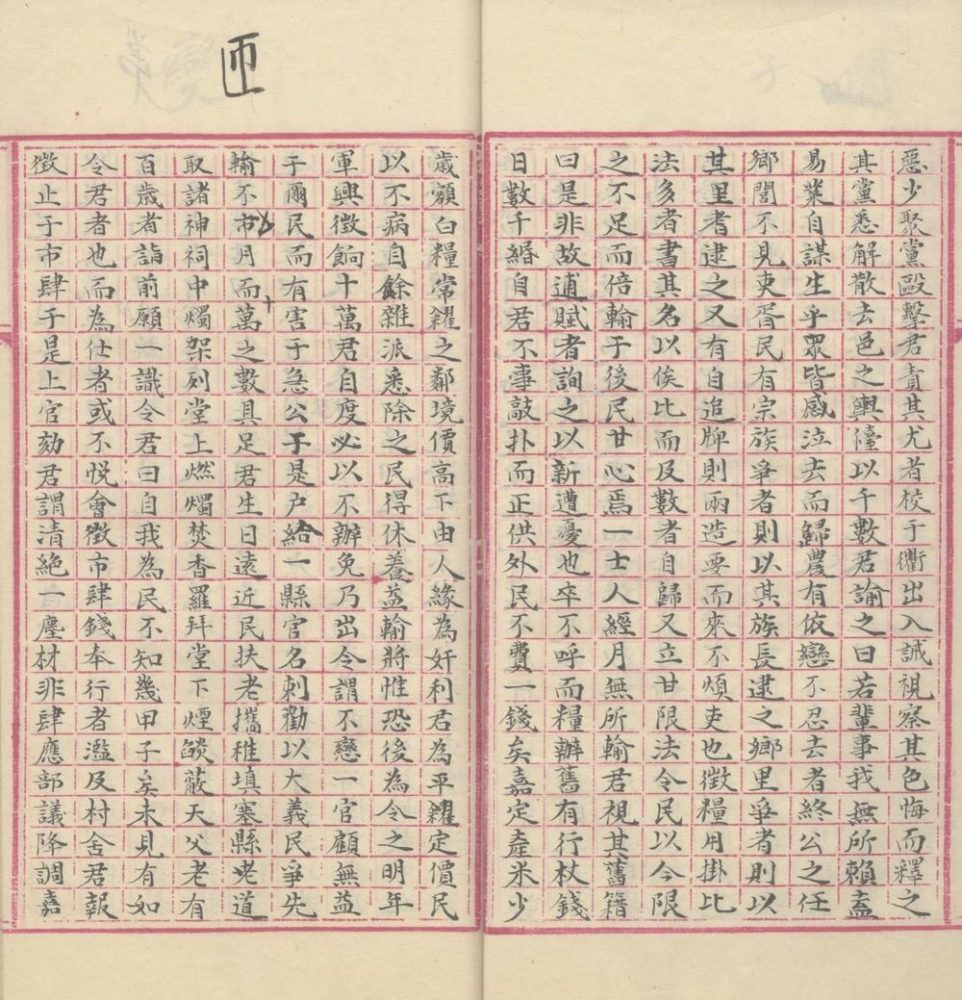 惡少聚黨毆擊君責其尤者校于衢出入誡視察其色悔而釋之
其黨悉解散去邑之輿儓以千數君諭之曰若輩事我無所賴盍
易業自謀生乎眾皆感泣去而歸農有依戀不忍去者終公之任
鄉閭不見吏胥民有宗族爭者則以其族長逮之鄉里爭者則以
其里耆逮之又有自追牌則兩造要而來不煩吏也徵糧用掛比
法多者書其名以俟比而及數者自歸又立甘限法令民以今限
之不足而倍輸于後民甘心焉一士人經月無所輸君視其舊籍
曰是非故逋賦者詢之以新遭憂也卒不呼而糧辦舊有行杖錢
日數千緡自君不事敲扑而正供外民不費一錢矣嘉定產米少
歲額白糧常糴之鄰境價高下由人緣為奸利君為平糴定價民
以不病自餘雜派悉除之民得休養益輸將惟恐後為令之明年
軍興徵餉十萬君自度必以不辦免乃出令謂不戀一官顧無益
于爾民而有害于急公于是户給一縣官名刺勸以大義民爭先
輸不市月而十萬之數具足君生日遠近民扶老攜稚填塞縣老道
取諸神祠中燭架列堂上燃燭焚香羅拜堂下煙燄蔽天父老有
百歲者詣前願一識令君曰自我為民不知幾甲子矣未見有如
令君者也而為仕者或不悅會徵市肆錢奉行者濫及村舍君報
徵止于市肆于是上官劾君謂清絕一塵材非肆應部議降調嘉
匝